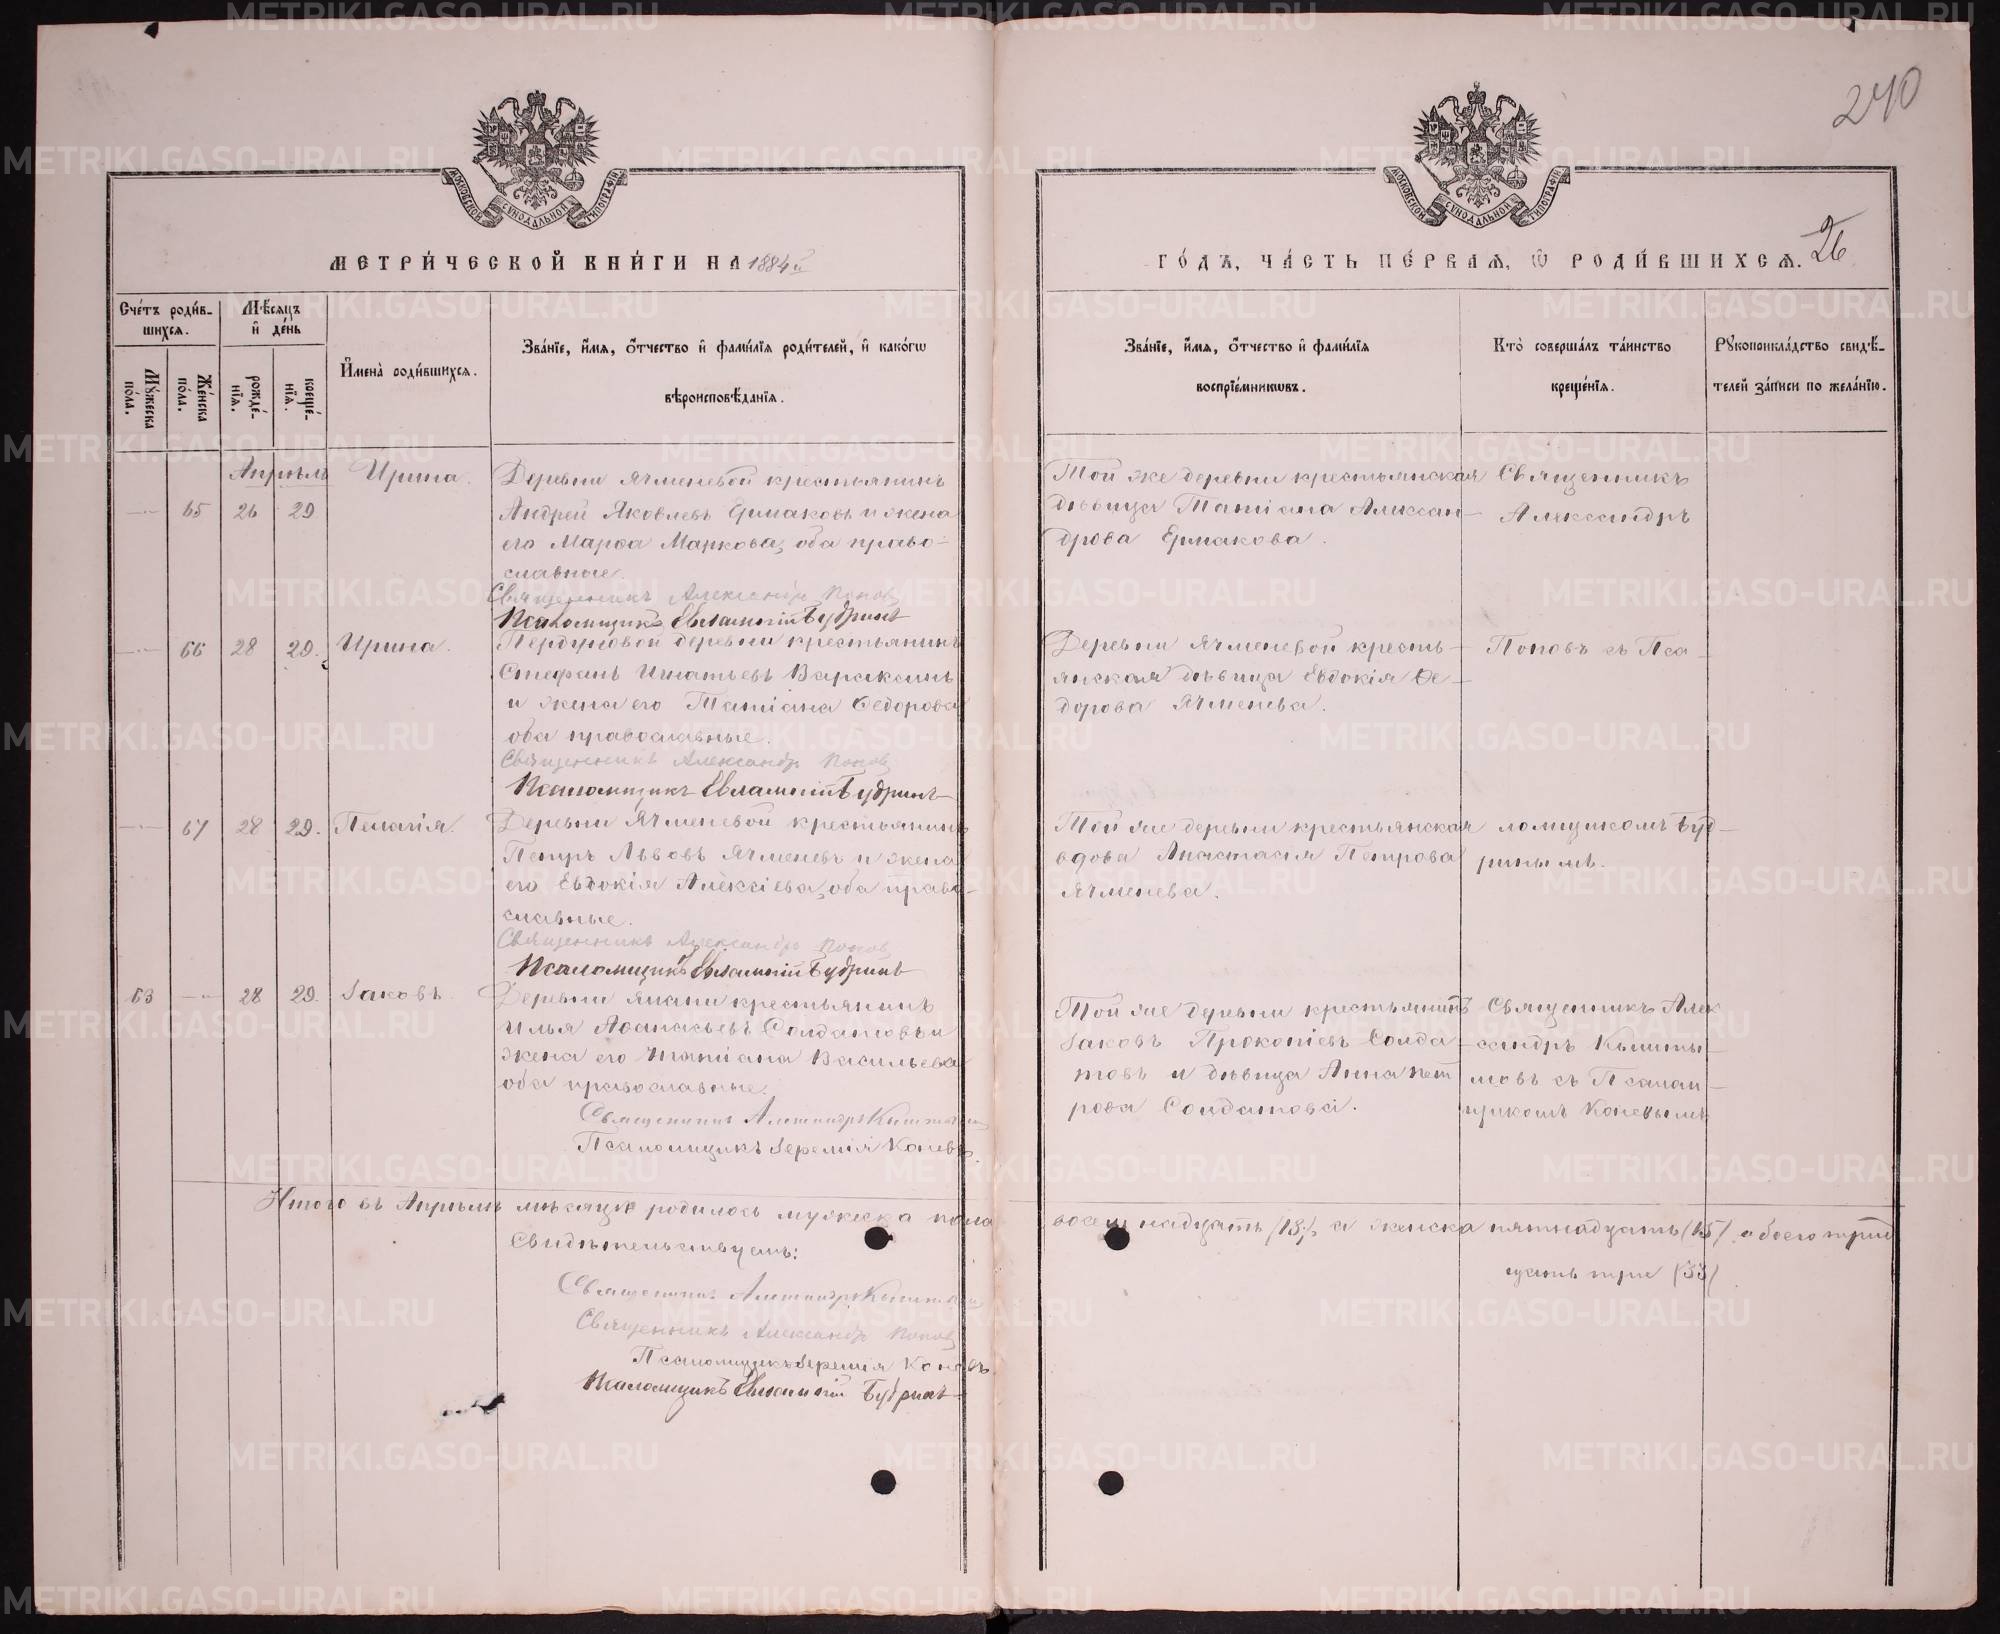 240
МОСКОВСКОЙ СѴНОДАЛЬНОЙ ТИПОГРАФІИ
МОСКОВСКОЙ СѴНОДАЛЬНОЙ ТИПОГРАФІИ
МЕТРИ́ЧЕСКОЙ КНИ́ГИ НА 1884й
ГО́ДЪ, ЧА́СТЬ ПЕ́РВАѦ, Ѿ РОДИ́ВШИХСѦ. 26
Сче́тъ роди́в-
шихсѧ.
Мꙋ́жеска по́ла.
Же́нска по́ла.
Мѣ́сѧцъ
и҆ де́нь
рожде́-
нїѧ.
креще́-
нїѧ.
И҆мена̀ роди́вшихсѧ.
Зва́нїе, и҆́мѧ, ѻ҆́тчество и҆ фами́лїѧ роди́телей, и҆ како́гѡ
вѣроисповѣ́данїѧ.
Зва́нїе, и҆́мѧ, ѻ҆́тчество и҆ фами́лїѧ
воспрїе́мникѡвъ.
Кто̀ соверша́лъ та́инство
креще́нїѧ.
Рꙋкоприкла́дство свидѣ́-
телей за́писи по жела́нїю.
Апрѣль
65 26 29 Ирина.
Деревни Ячменевой крестьянинъ
Андрей Яковлевъ Ермаковъ и жена
его Марѳа Маркова, оба право-
славные.
Священникъ Александръ Поповъ
Псаломщикъ Евлампій Будринъ
Той же деревни крестьянская
дѣвица Татіана Алексан-
дрова Ермакова.
Священникъ
Александръ
66 28 29. Ирина.
деревни крестьянинъ
Стефанъ Игнатьевъ Вараксинъ
и жена его Татіана Ѳедорова
оба православные.
Священникъ Александръ Поповъ
Псаломщикъ Евлампій Будринъ
Деревни Ячменевой кресть-
янская дѣвица Евдокія Ѳе-
дорова Ячменева.
Поповъ съ Пса-
67 28 29. Пелагія.
Деревни Ячменевой крестьянинъ
Петръ Львовъ Ячменевъ и жена
его Евдокія Алексіева, оба право-
славные.
Священникъ Александръ Поповъ
Псаломщикъ Евлампій Будринъ
Той же деревни крестьянская
вдова Анастасія Петрова
Ячменева.
ломщикомъ Буд-
ринымъ.
63 28 29. Іаковъ.
Деревни крестьянинъ
Илья Аѳанасьевъ Солдатовъ и
жена его Татіана Васильева
оба православные.
Священникъ
Псаломщикъ Іеремія Коневъ.
Той же деревни крестьянинъ
Іаковъ Прокопіевъ Солда-
товъ и дѣвица Анна Пет
рова Солдатова.
Священникъ Алек
сандръ Кышты-
мовъ съ Псалом-
щикомъ Коневымъ
Итого въ Апрѣлѣ мѣсяцѣ родилось мужеска пола
восемнадцать (18), а женска пятнадцать (15), обоего трид
цать три (33)
Свидѣтельствуемъ:
Священникъ
Священникъ Александръ Поповъ
Псаломщикъ Іеремія Коневъ
Псаломщикъ Евлампій Будринъ
METRIKI.GASO-URAL.RU